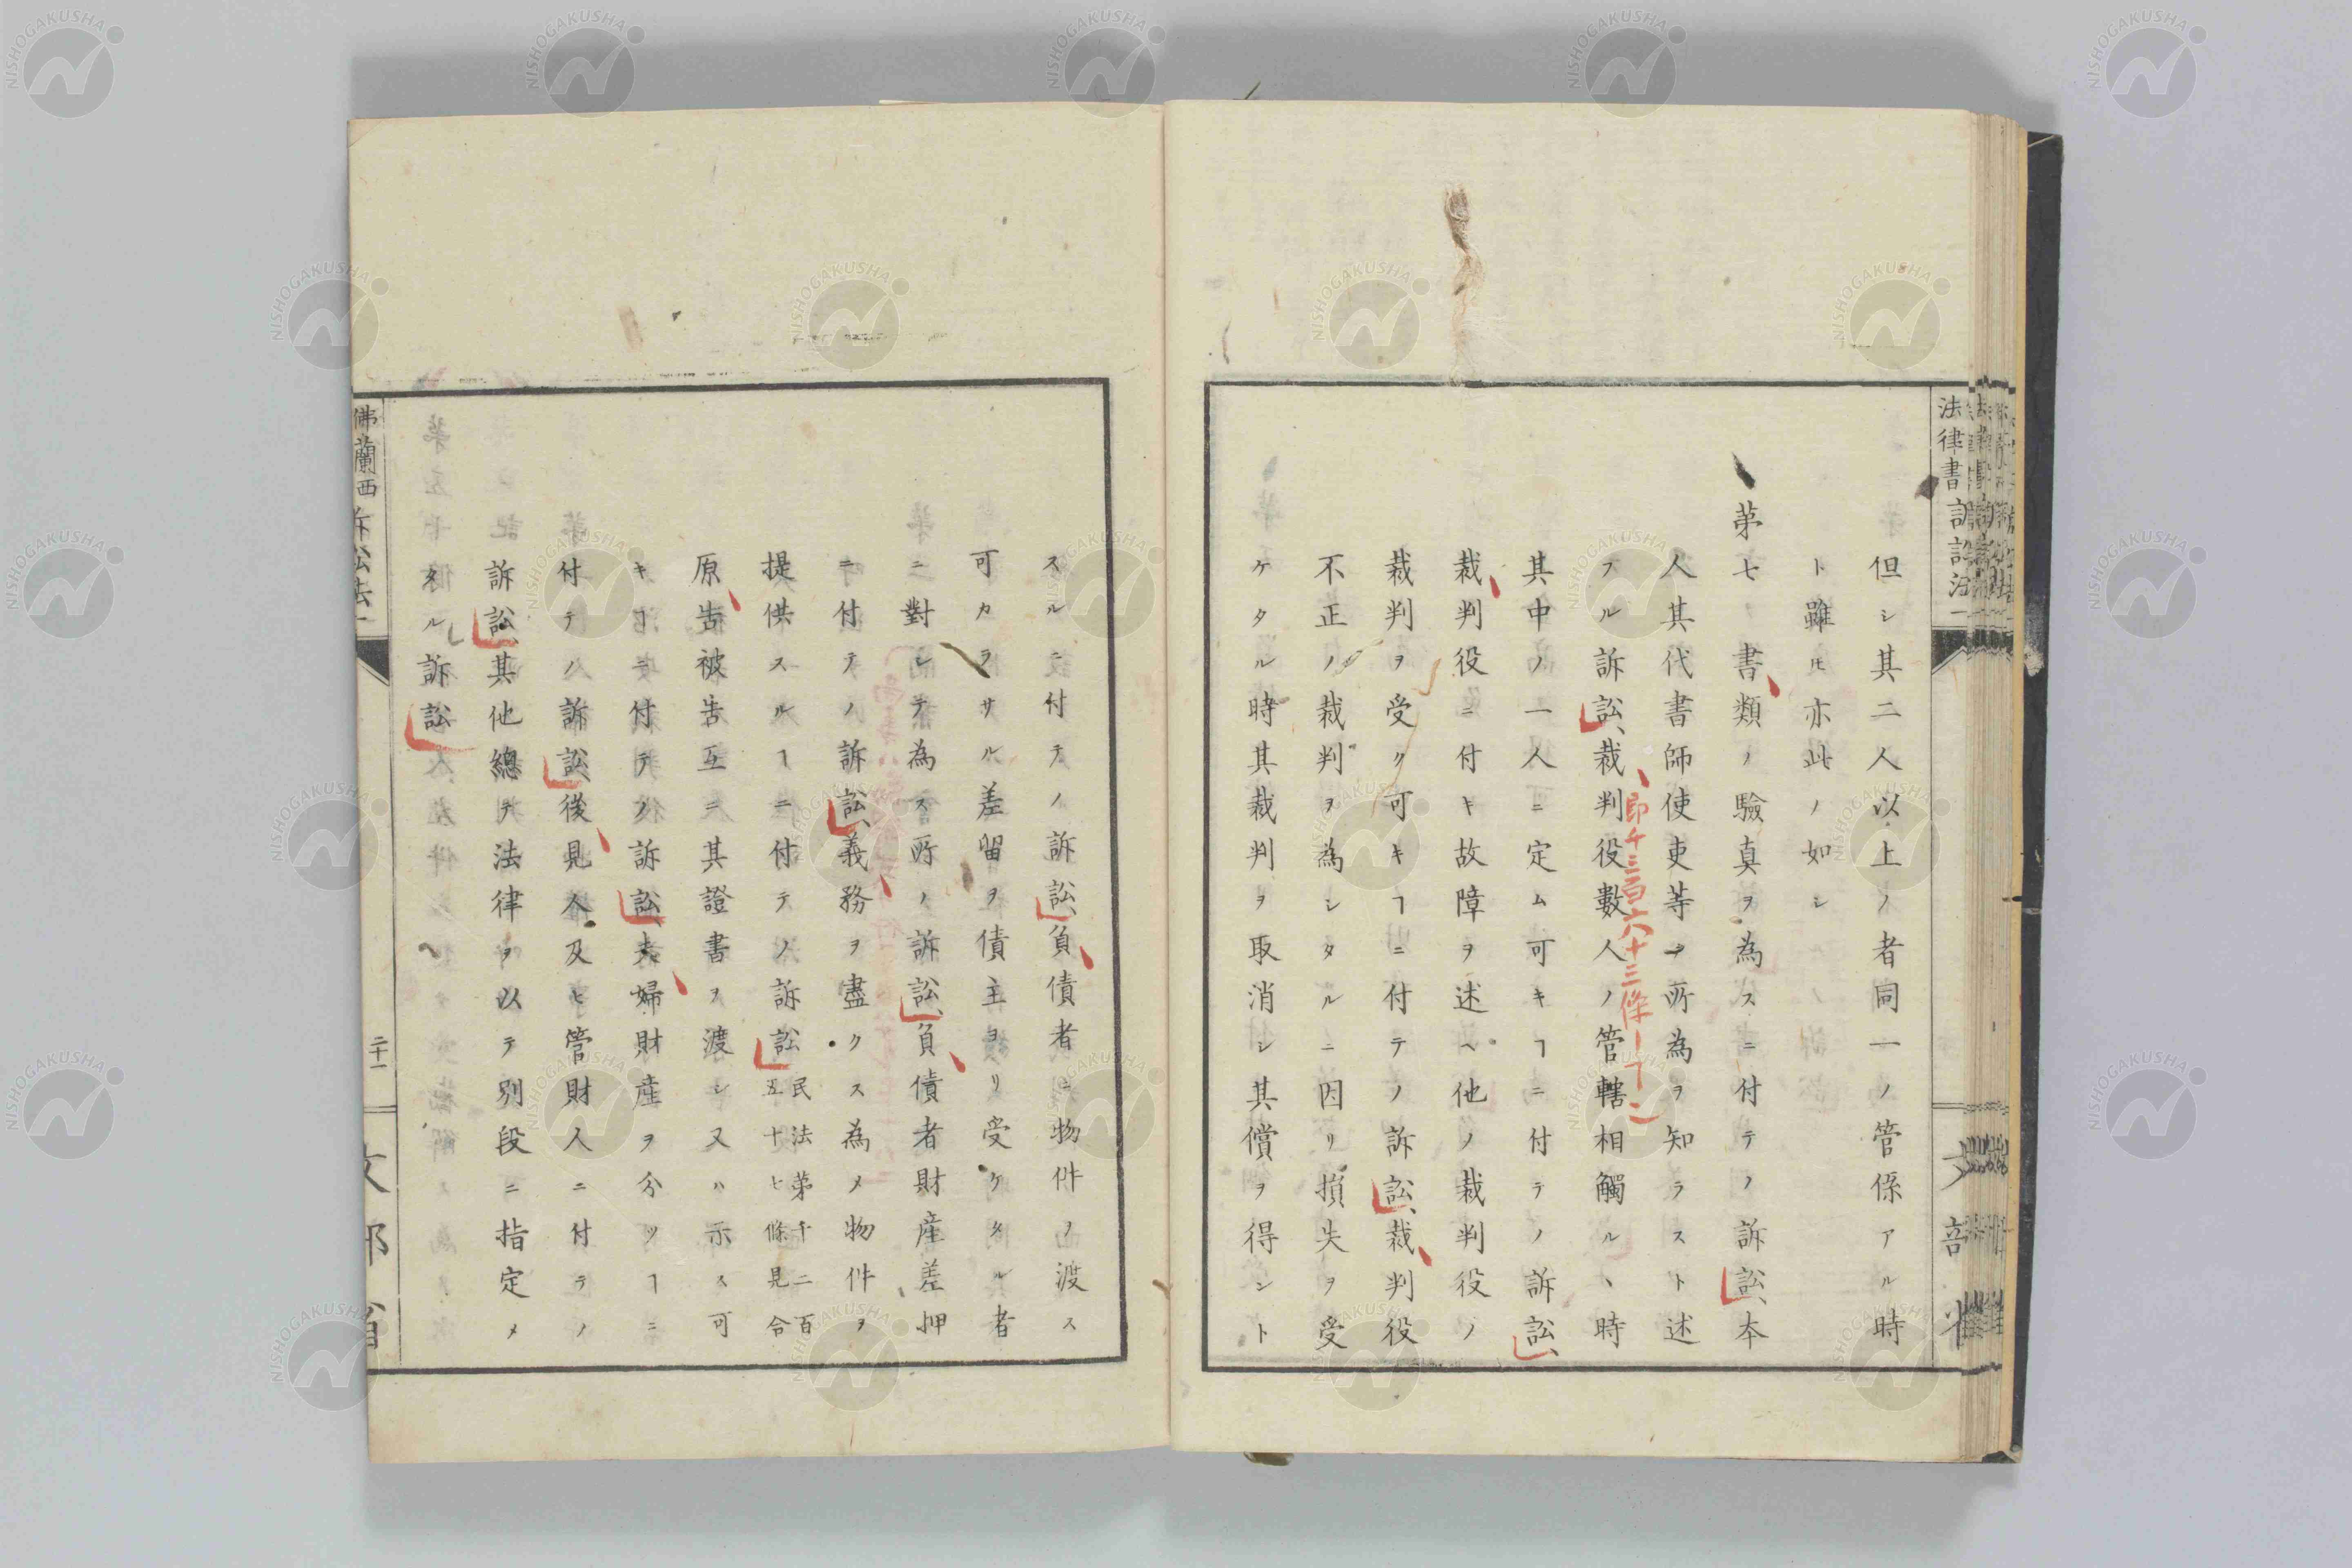 但シ其二人以上ノ者同一ノ管係アル時
ト雖ㇳモ亦此ノ如シ
第七ノ書類ノ驗真ヲ為スニ付テノ訴訟、本
人其代書師使吏等ヲ所為ヲ知ラスト述
フル訴訟、裁判役數人ノ管轄相觸ルヽ時
即チ三百六十三條
其中ノ一人ニ定ム可キヿニ付テノ訴訟、
裁判役ニ付キ故障ヲ述ヘ他ノ裁判役ノ
裁判ヲ受ク可キヿニ付テノ訴訟、裁判役
不正ノ裁判ヲ為シタルニ因リ損失ヲ受
ケタル時其裁判ヲ取消シ其償ヲ得ント
法律書
文部省
スルニ付テノ訴訟、負債者ニ物件ヲ渡ス
可カラサル差留ヲ債主ヨリ受ケタル者
ニ對シテ為ス所ノ訴訟、負債者財産差押
ニ付テノ訴訟、義務ヲ盡クス為メ物件ヲ
提供スルヿニ付テノ訴訟民法第千二百五十七條見合
原告被告互ニ其證書ヲ渡シ又ハ示ス可
キヿニ付テノ訴訟、夫婦財産ヲ分ツヿニ
付テノ訴訟、後見人及ヒ管財人ニ付テノ
訴訟、其他總テ法律ヲ以テ別段ニ指定メ
タル訴訟
佛蘭西訴訟法一
二十一
文部省